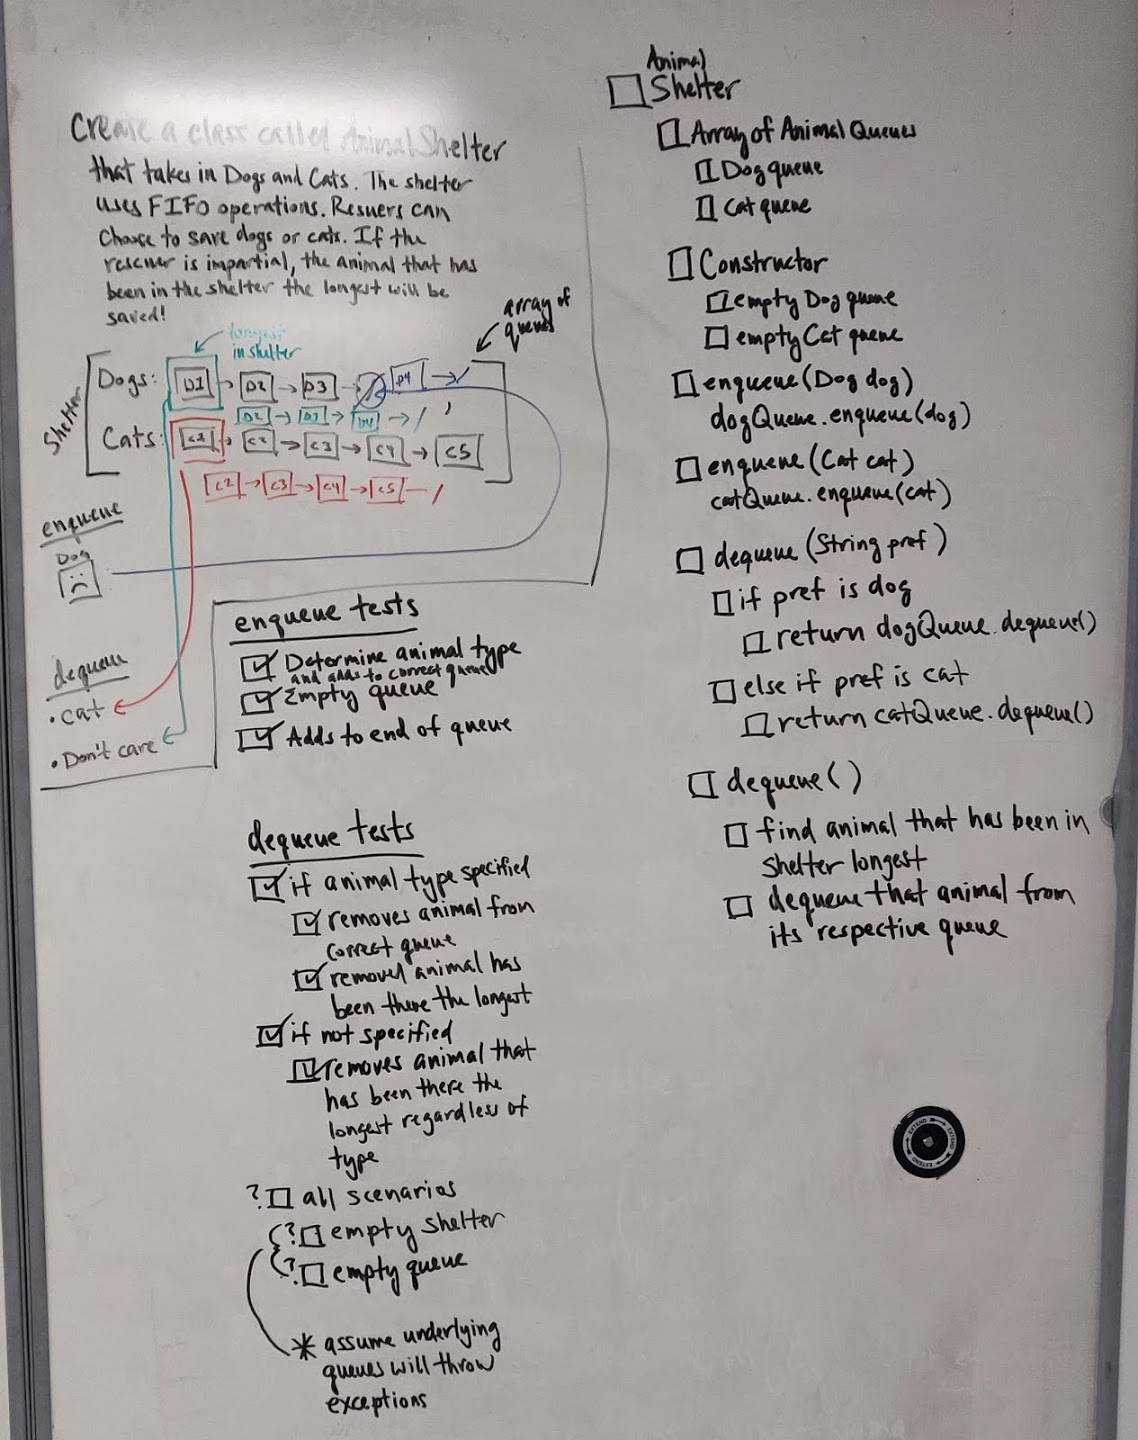 Create a class called Animal Shelter
that takes in Dogs and Cats. The shelter
uses FIFO operations. Resuers can
choose to save dogs or cats. If the
rescuer is impartial, the animal that has
been in the shelter the longest will be
saved!
longest
in shelter
array of
queues
Shelter
Dogs: D1 D2 D3 D4
D2 D3 D4
Cats: C1 C2 C3 C4 C5
C2 C3 C4 C5
enqueue
Dog
dequeue
• cat
• Don't care
enqueue tests
Determine animal type
and adds to correct queue
Empty queue
Adds to end of queue
dequeue tests
if animal type specified
removes animal from
correct queue
removed animal has
been there the longest
if not specified
removes animal that
has been there the
longest regardless of
type
? all scenarios
? empty shelter
? empty queue
* assume underlying
queues will throw
exceptions
Animal
Shelter
Array of Animal Queues
Dog queue
Cat queue
Constructor
empty Dog queue
empty Cat queue
enqueue (Dog dog)
dogQueue.enqueue(dog)
enqueue (Cat cat)
catQueue.enqueue(cat)
dequeue (String pref)
if pref is dog
return dogQueue.dequeue()
else if pref is cat
return catQueue.dequeue()
dequeue ( )
find animal that has been in
shelter longest
dequeue that animal from
its respective queue
EXTEND EXTEND EXTEND